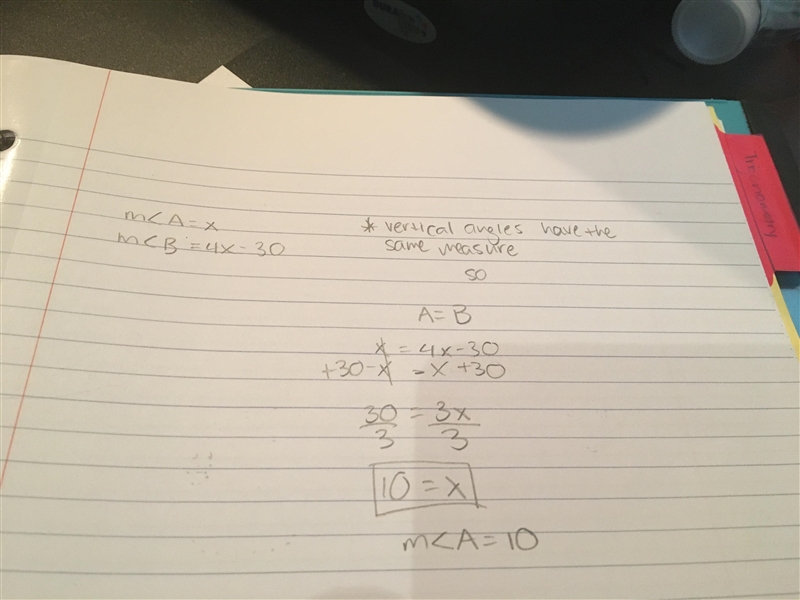 m<A = x
m<B = 4x - 30
* vertical angles have the
same measure
so
A = B
x = 4x - 30
+30 - x = - x + 30
30 = 3x
3 3
10 = x
m<A = 10
Trigonometry